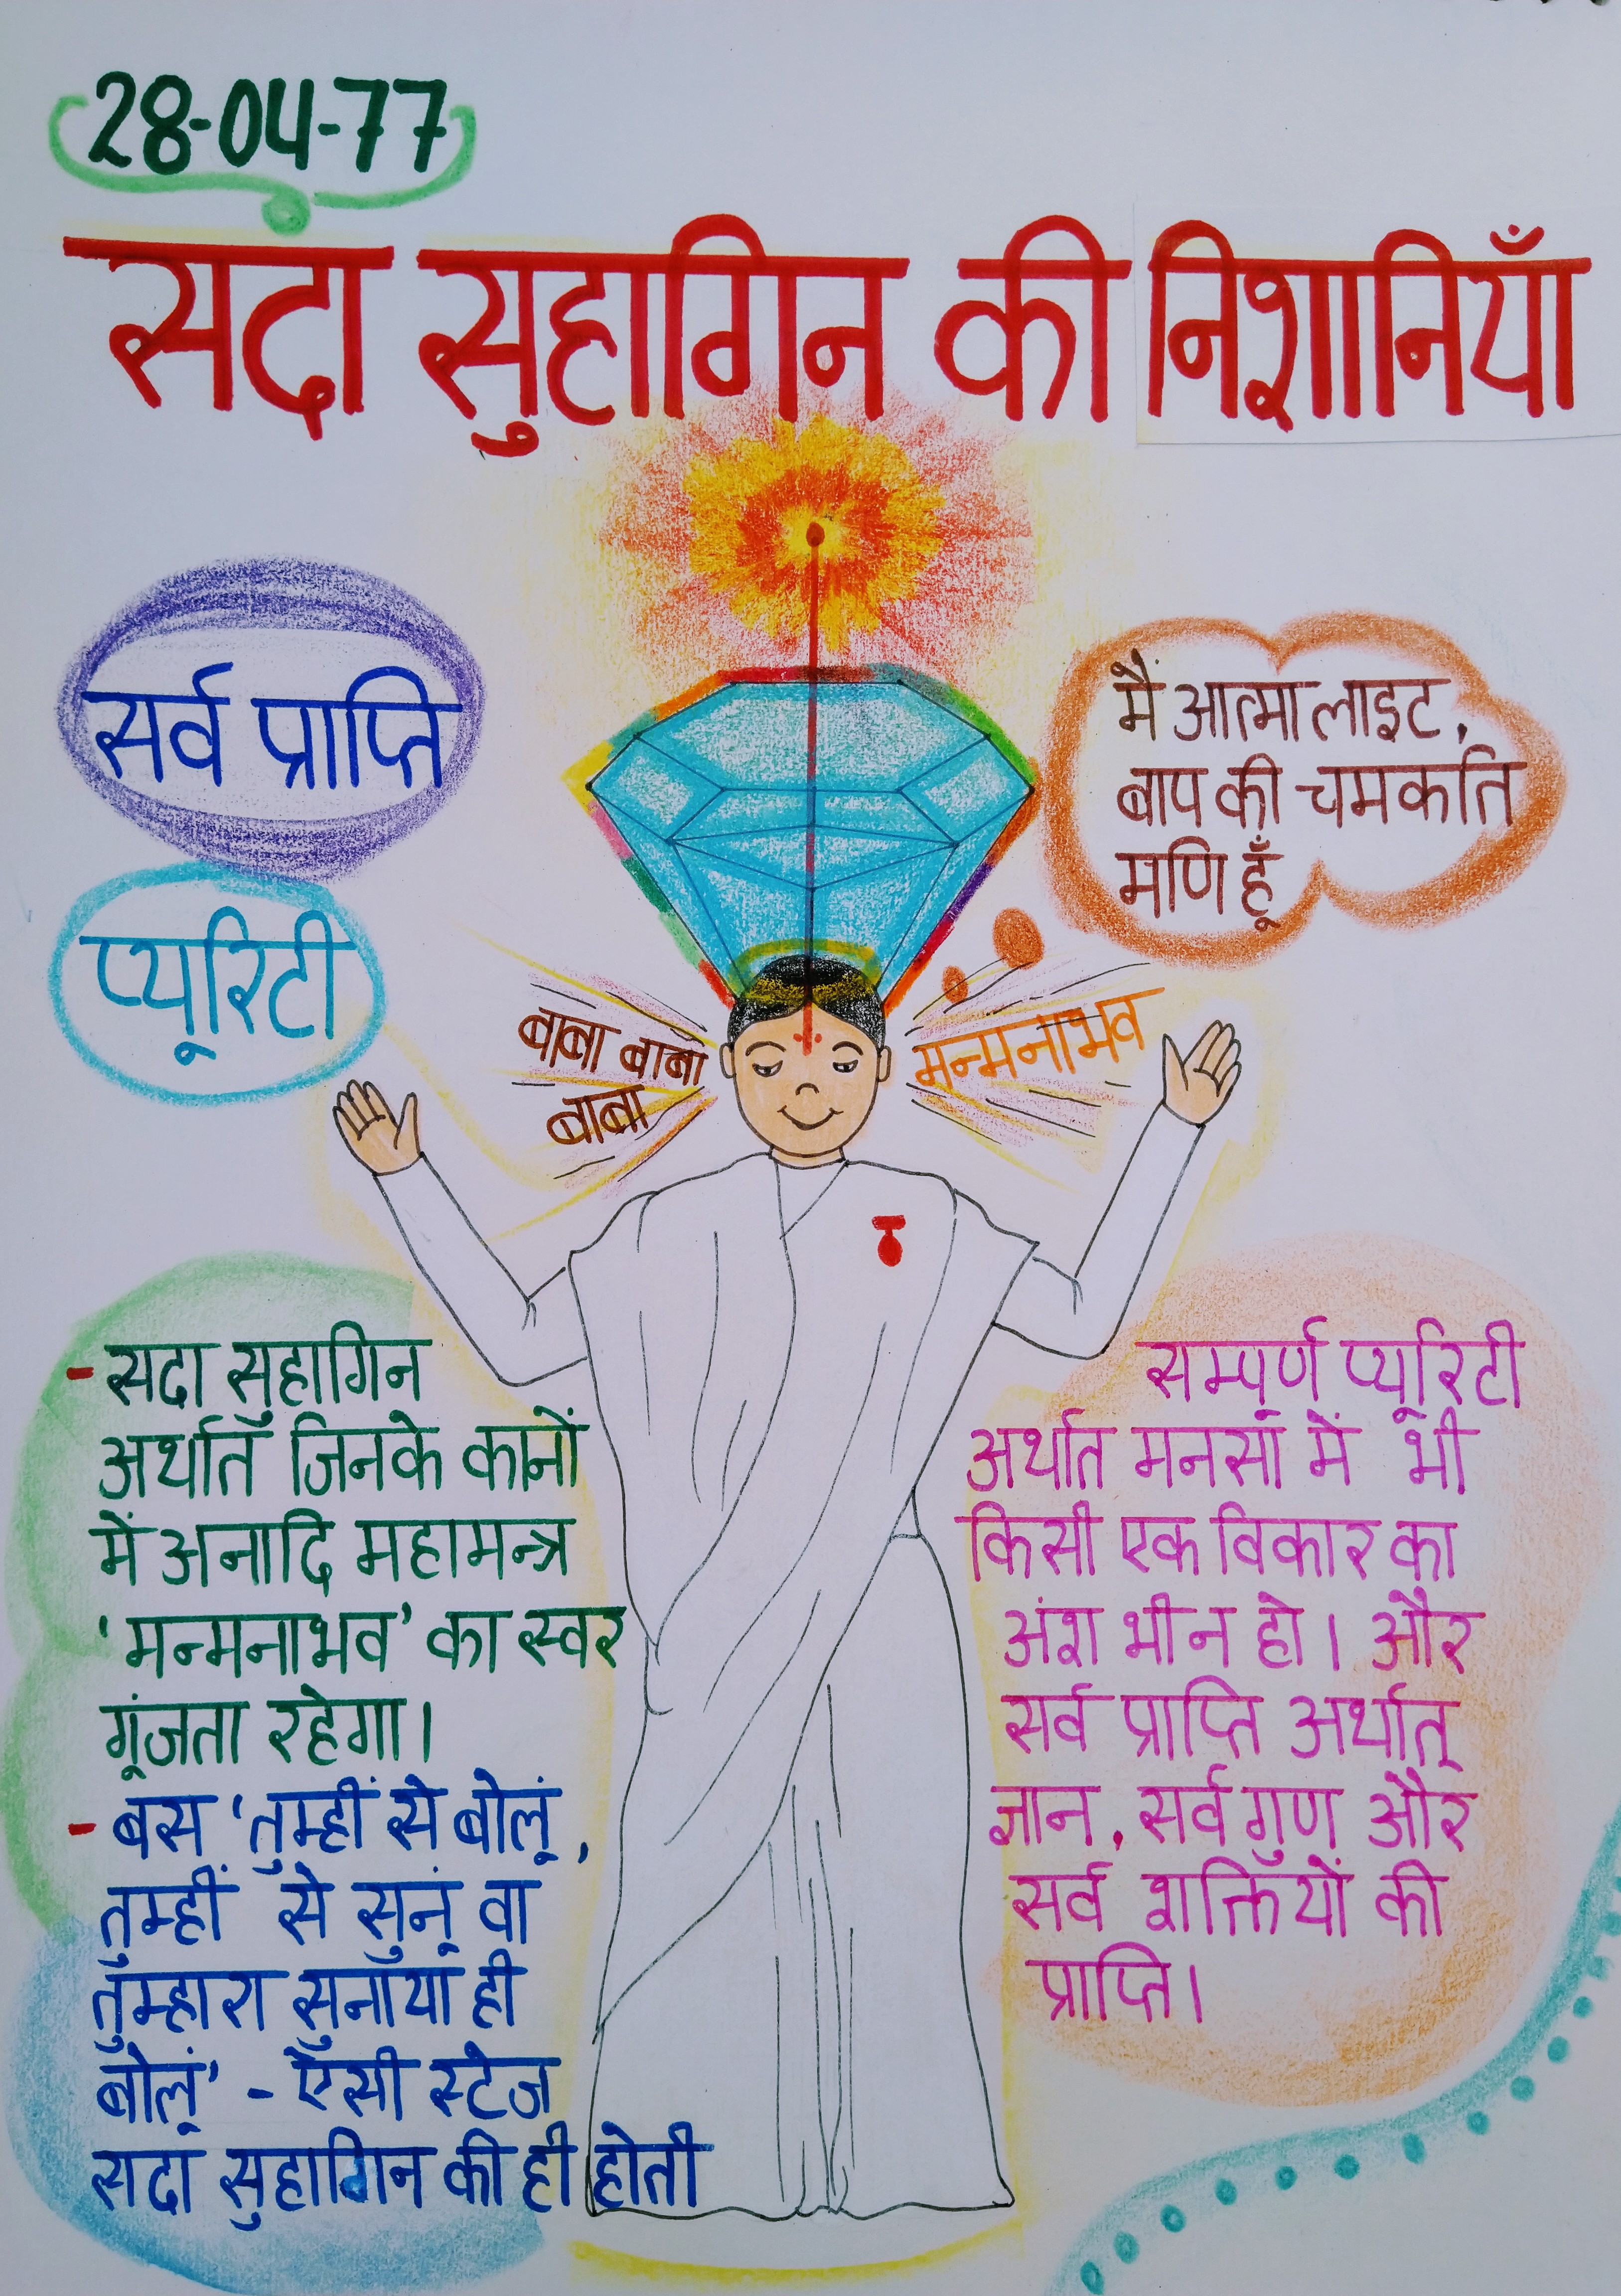 28-04-77
सदा सुहागिन की निशानियाँ
सर्व प्राप्ति
प्यूरिटी
मैं आत्मा लाइट,
बाप की चमकति
मणि हूँ
बाबा बाबा
बाबा
मन्मनाभव
- सदा सुहागिन
अर्थात जिनके कानों
में अनादि महामन्त्र
'मन्मनाभव' का स्वर
गूंजता रहेगा।
- बस 'तुम्हीं से बोलूं,
तुम्हीं से सुनूं वा
तुम्हारा सुनाया ही
बोलूं' - ऐसी स्टेज
सदा सुहागिन की ही होती
सम्पूर्ण प्यूरिटी
अर्थात मनसा में भी
किसी एक विकार का
अंश भी न हो। और
सर्व प्राप्ति अर्थात्
ज्ञान, सर्व गुण और
सर्व शक्तियों की
प्राप्ति।